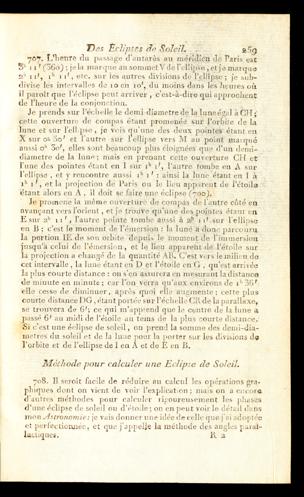 Des Eclipses de Soleil. 259
707. L'heure du passage d'antarès au méridien de Paris est
3h 11' (360); je la marque au sommet V de l'ellipse, et je marque
2h 11', 1h 11', etc. sur les autres divisions de l'ellipse; je sub-
divise les intervalles de 10 en 10', du moins dans les heures où
il paroît que l'éclipse peut arriver, c'est-à-dire qui approchent
de l'heure de la conjonction.
Je prends sur l'échelle le demi-diametre de la lune égal à CH;
cette ouverture de compas étant promenée sur l'orbite de la
lune et sur l'ellipse, je vois qu'une des deux pointes étant en
X sur 0h 30' et l'autre sur l'ellipse vers M au point marqué
aussi 0h 30', elles sont beaucoup plus éloignées que d'un demi-
diametre de la lune; mais en prenant cette ouverture CH et
l'une des pointes étant en I sur 1h 1', l'autre tombe en A sur
l'ellipse, et y rencontre aussi 1h 1'; ainsi la lune étant en I à
1h 1', et la projection de Paris ou le lieu apparent de l'étoile
étant alors en A, il doit se faire une éclipse (700).
Je promene la même ouverture de compas de l'autre côté en
avançant vers l'orient, et je trouve qu'une des pointes étant en
E sur 2h 11', l'autre pointe tombe aussi à 2h 11' sur l'ellipse
en B: c'est le moment de l'émersion: la lune a donc parcouru
la portion IE de son orbite depuis le moment de l'immersion
jusqu'à celui de l'émersion, et le lieu apparent de l'étoile sur
la projection a changé de la quantité AB. C'est vers le milieu de
cet intervalle, la lune étant en D et l'étoile en G, qu'est arrivée
la plus courte distance: on s'en assurera en mesurant la distance
de minute en minute; car l'on verra qu'aux environs de 1h 36'
elle cesse de diminuer, après quoi elle augmente; cette plus
courte distance DG, étant portée sur l'échelle CR de la parallaxe,
se trouvera de 6'; ce qui m'apprend que le centre de la lune a
passé 6' au midi de l'étoile au tems de la plus courte distance.
Si c'est une éclipse de soleil, on prend la somme des demi-dia-
metres du soleil et de la lune pour la porter sur les divisions de
l'orbite et de l'ellipse de I en A et de E en B.
Méthode pour calculer une Eclipse de Soleil.
708. Il seroit facile de réduire au calcul les opérations gra-
phiques dont on vient de voir l'explication; mais on a encore
d'autres méthodes pour calculer rigoureusement les phases
d'une éclipse de soleil ou d'étoile; on en peut voir le détail dans
mon Astronomie: je vais donner une idée de celle que j'ai adoptée
et perfectionnée, et que j'appelle la méthode des angles paral-
lactiques. R 2